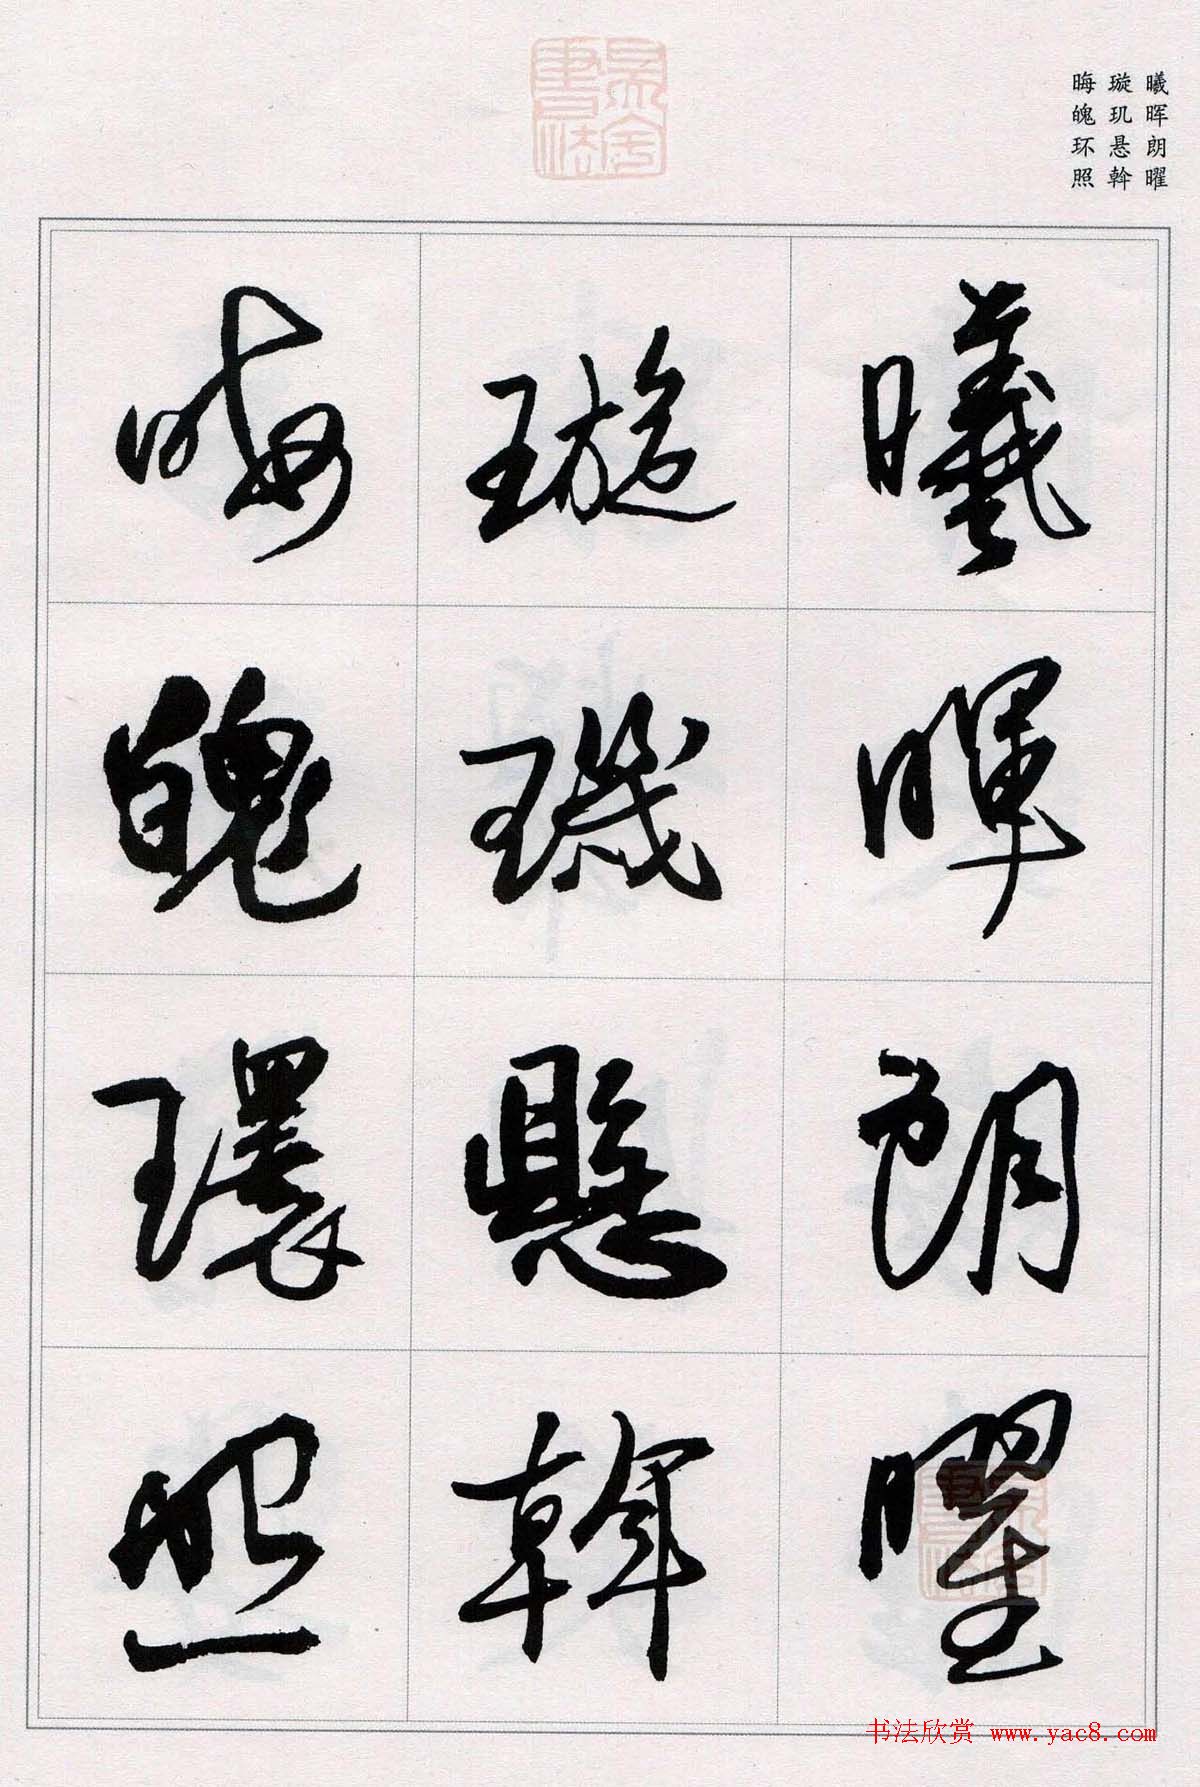 曦晖朗曜
璇玑悬斡
晦魄环照
曦暉朗曜
璇璣懸斡
晦魄環照
书法欣赏 www.yac8.com